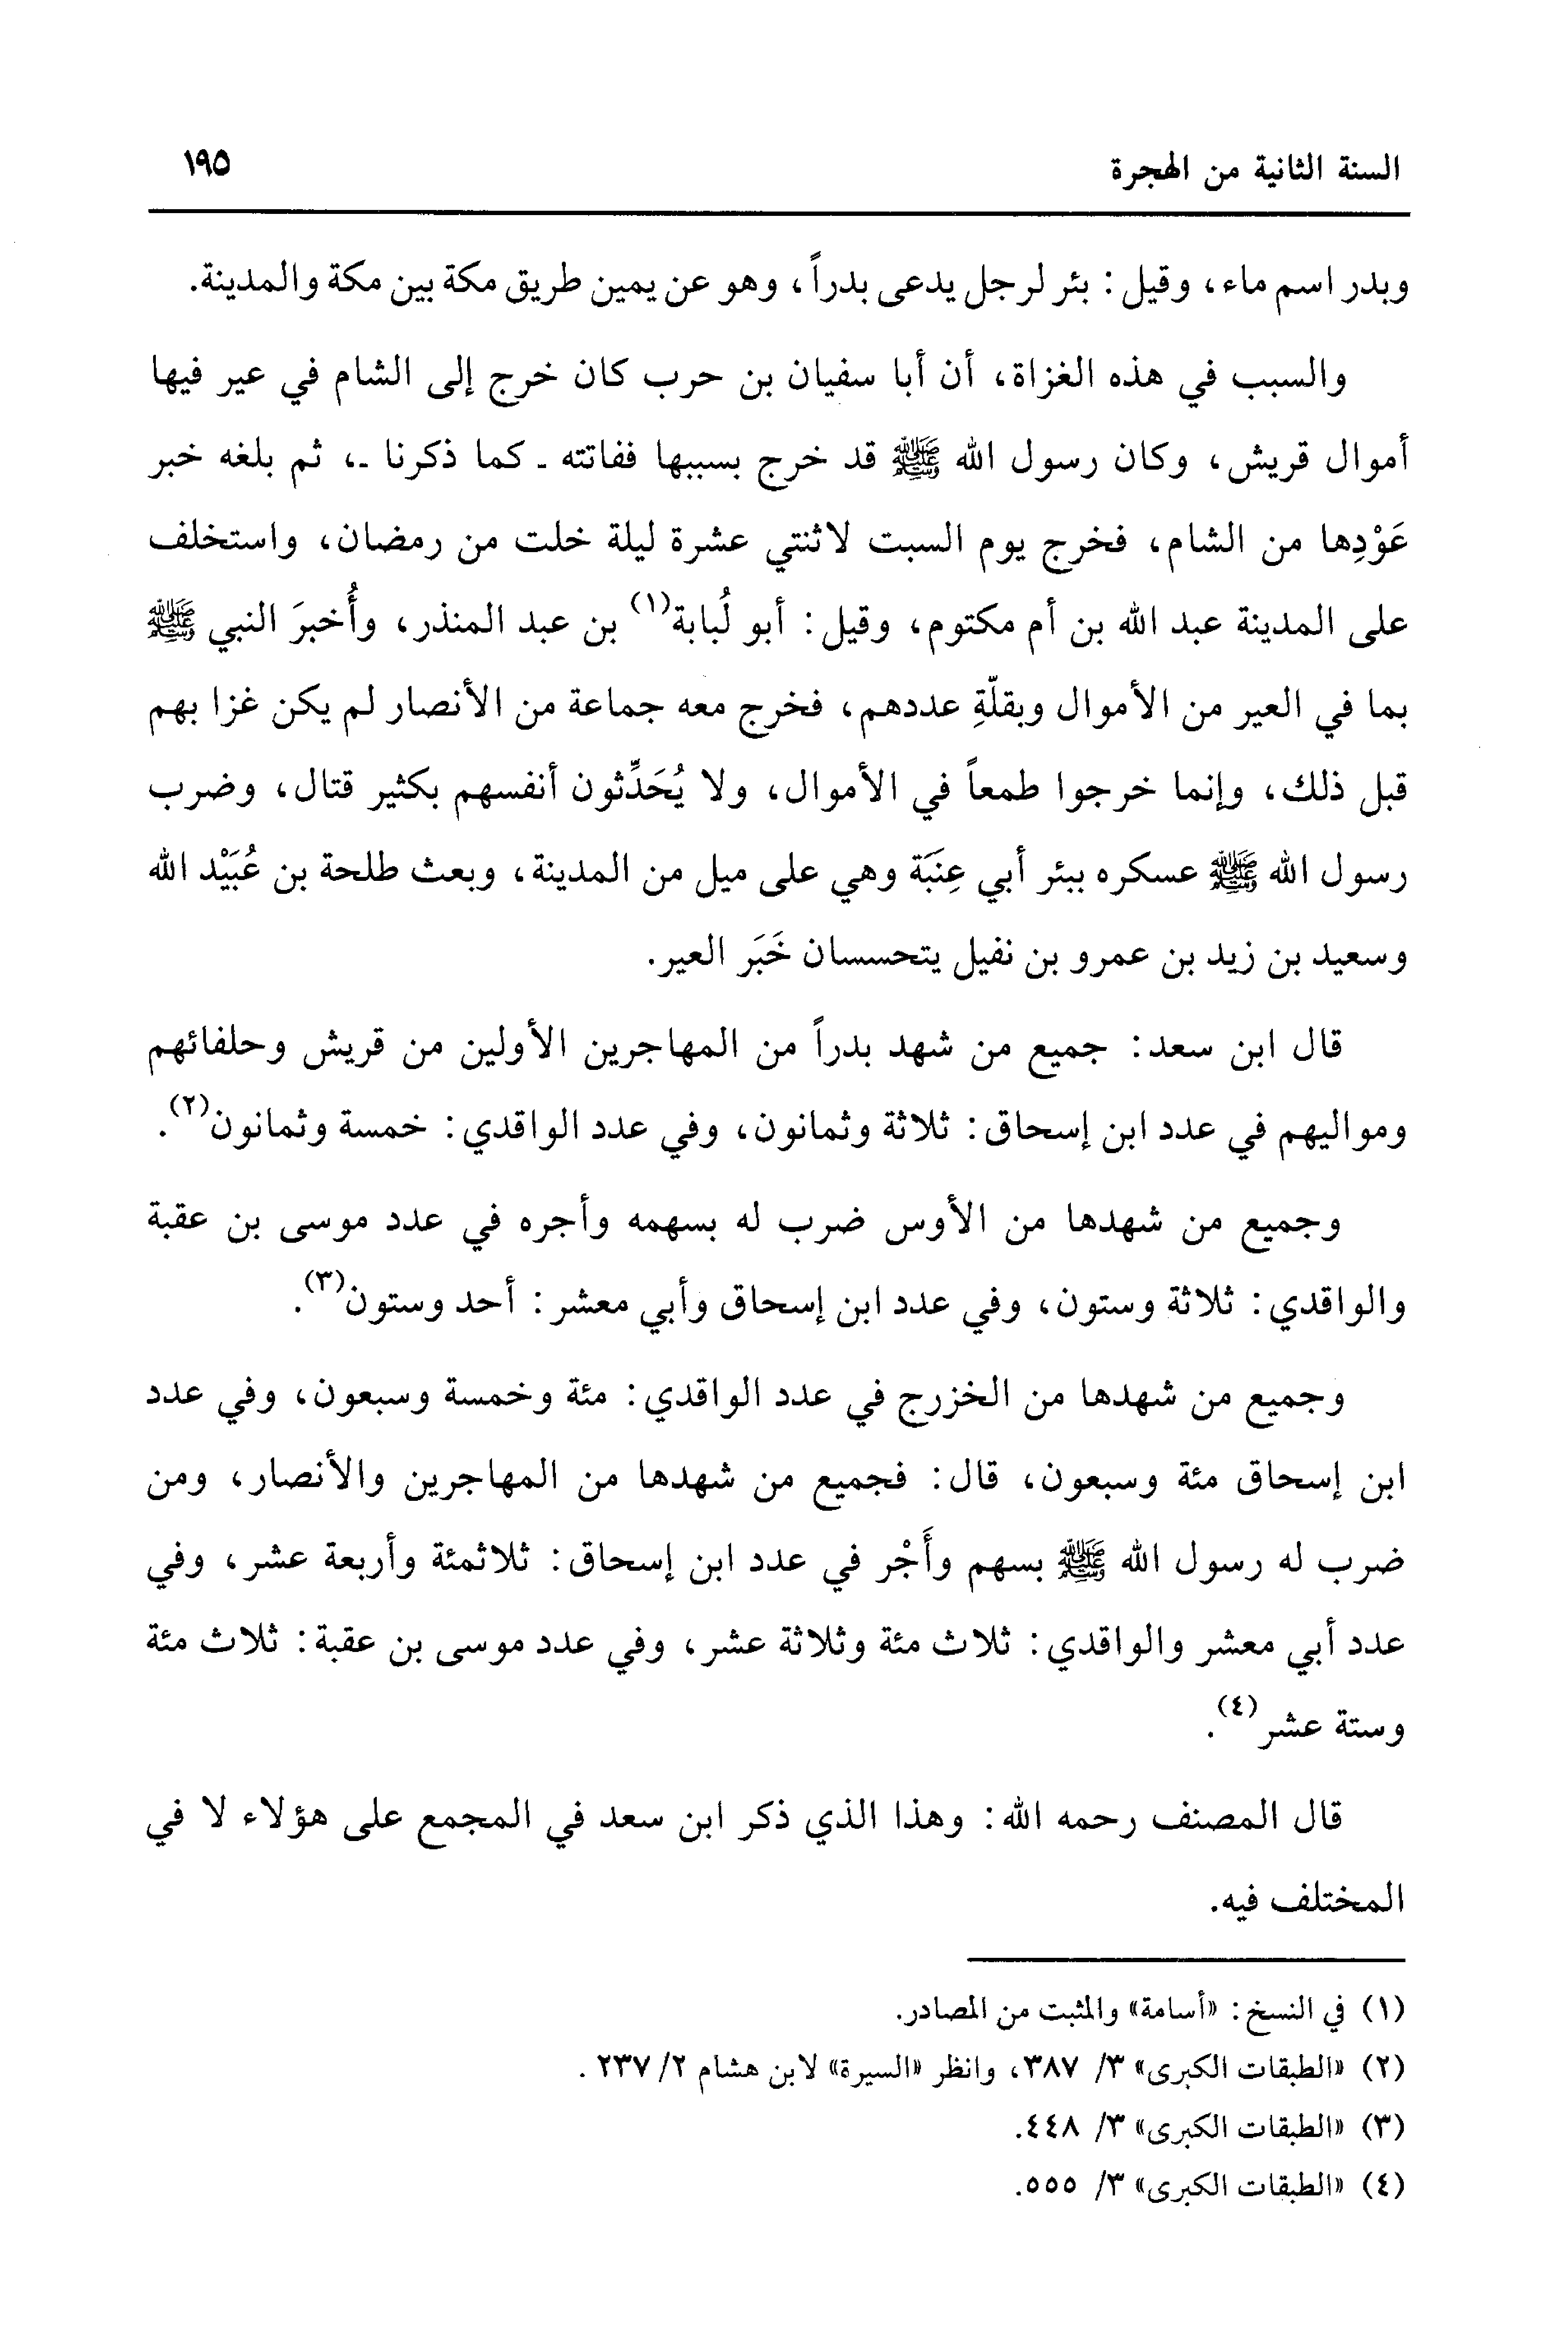 السنة الثانية من الهجرة ١٩٥
وبدر اسم ماء، وقيل: بئر لرجل يدعى بدراً، وهو عن يمين طريق مكة بين مكة والمدينة.
والسبب في هذه الغزاة، أن أبا سفيان بن حرب كان خرج إلى الشام في عير فيها
أموال قريش، وكان رسول الله ﷺ قد خرج بسببها ففاتته ـ كما ذكرنا ـ، ثم بلغه خبر
عَوْدِها من الشام، فخرج يوم السبت لاثنتي عشرة ليلة خلت من رمضان، واستخلف
على المدينة عبد الله بن أم مكتوم، وقيل: أبو لُبابة(١) بن عبد المنذر، وأُخبرَ النبي ﷺ
بما في العير من الأموال وبقلّةِ عددهم، فخرج معه جماعة من الأنصار لم يكن غزا بهم
قبل ذلك، وإنما خرجوا طمعاً في الأموال، ولا يُحَدِّثون أنفسهم بكثير قتال، وضرب
رسول الله ﷺ عسكره ببئر أبي عِنَبَة وهي على ميل من المدينة، وبعث طلحة بن عُبَيْد الله
وسعيد بن زيد بن عمرو بن نفيل يتحسسان خَبَر العير.
قال ابن سعد: جميع من شهد بدراً من المهاجرين الأولين من قريش وحلفائهم
ومواليهم في عدد ابن إسحاق: ثلاثة وثمانون، وفي عدد الواقدي: خمسة وثمانون(٢).
وجميع من شهدها من الأوس ضرب له بسهمه وأجره في عدد موسى بن عقبة
والواقدي: ثلاثة وستون، وفي عدد ابن إسحاق وأبي معشر: أحد وستون(٣).
وجميع من شهدها من الخزرج في عدد الواقدي: مئة وخمسة وسبعون، وفي عدد
ابن إسحاق مئة وسبعون، قال: فجميع من شهدها من المهاجرين والأنصار، ومن
ضرب له رسول الله ﷺ بسهم وأَجْر في عدد ابن إسحاق: ثلاثمئة وأربعة عشر، وفي
عدد أبي معشر والواقدي: ثلاث مئة وثلاثة عشر، وفي عدد موسى بن عقبة: ثلاث مئة
وستة عشر(٤).
قال المصنف رحمه الله: وهذا الذي ذكر ابن سعد في المجمع على هؤلاء لا في
المختلف فيه.
(١) في النسخ: «أسامة» والمثبت من المصادر.
(٢) «الطبقات الكبرى» ٣/ ٣٨٧، وانظر «السيرة» لابن هشام ٢/ ٢٣٧ .
(٣) «الطبقات الكبرى» ٣/ ٤٤٨.
(٤) «الطبقات الكبرى» ٣/ ٥٥٥.